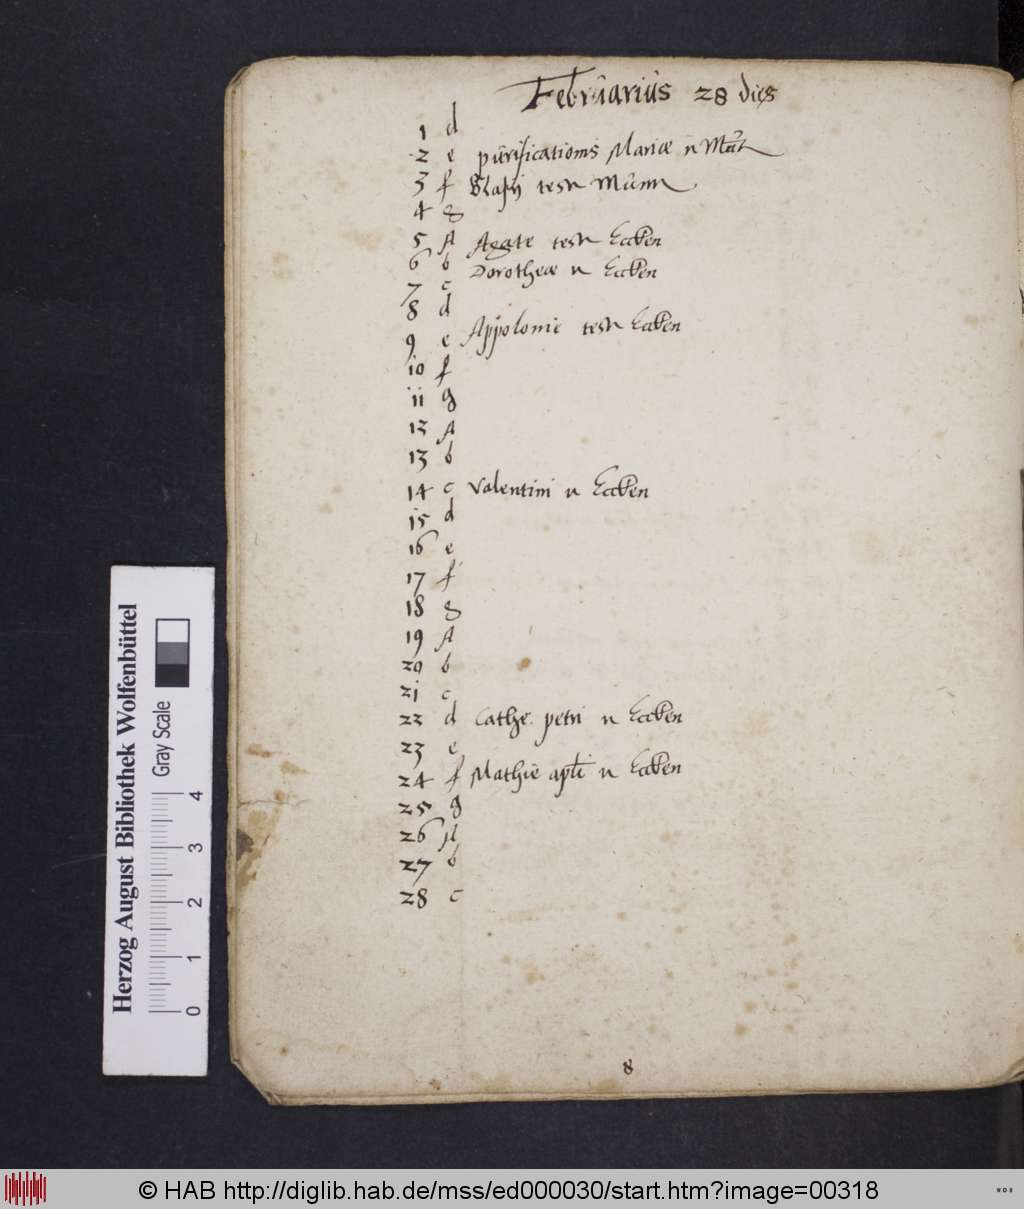 Februarius 28 dies
1 d
2 e purificationis Mariæ
3 f Blasij
4 g
5 A Agate Ecken
6 b Dorotheæ Ecken
7 c
8 d
9 e Appolonie Ecken
10 f
11 g
12 A
13 b
14 c Valentini Ecken
15 d
16 e
17 f
18 g
19 A
20 b
21 c
22 d Cathe. petri Ecken
23 e
24 f Mathie apli Ecken
25 g
26 A
27 b
28 c
8
Herzog August Bibliothek Wolfenbüttel
Gray Scale
0 1 2 3 4
© HAB http://diglib.hab.de/mss/ed000030/start.htm?image=00318